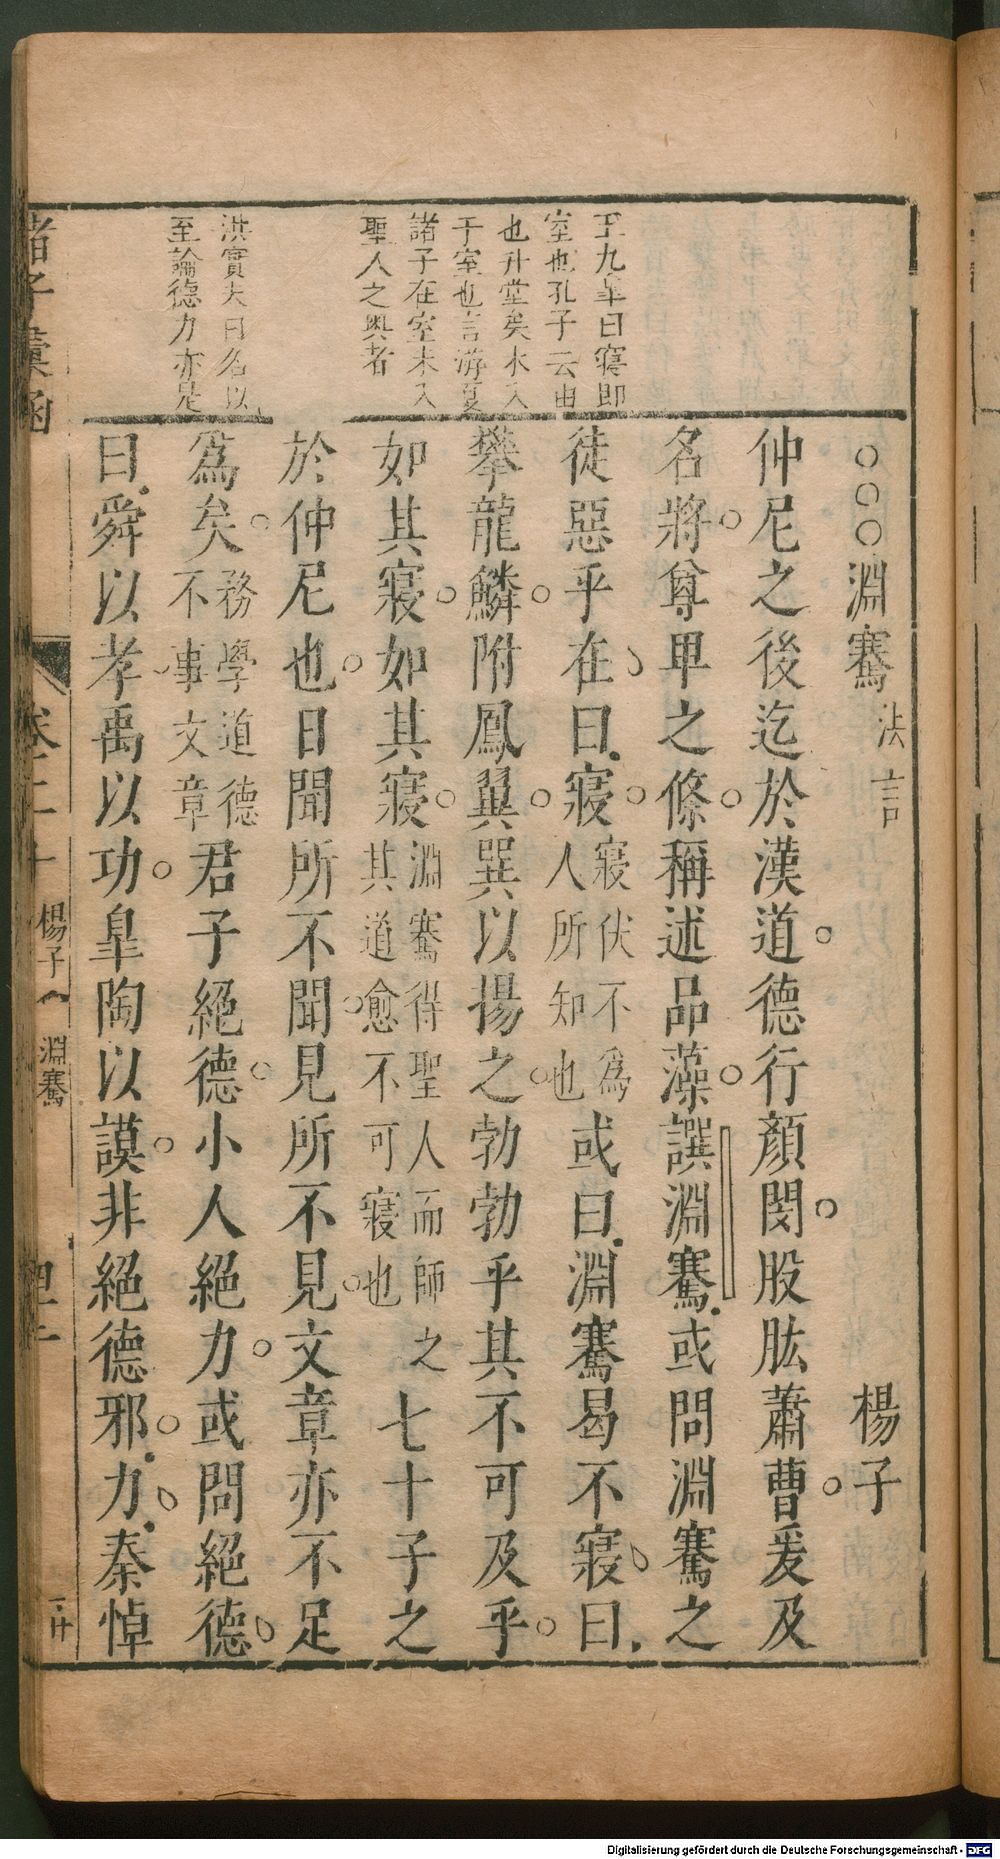 王九臯曰寢卽
室也孔子云由
也升堂矣未入
于室也言游夏
諸子在室未入
聖人之奧者
洪實夫曰名以
至論德力亦是
○○○淵騫 法言 楊子
仲尼之後迄於漢道德行顏閔股肱蕭曹爰及
名將尊𤰞之條稱述品藻譔淵騫或問淵騫之
徒惡乎在曰寢 寢伏不爲 人所知也 或曰淵騫曷不寢曰
攀龍鱗附鳳翼巽以揚之勃勃乎其不可及乎
如其寢如其寢 淵騫得聖人而師之 其道愈不可寢也 七十子之
於仲尼也日聞所不聞見所不見文章亦不足
爲矣 務學道德 不事文章 君子絕德小人絕力或問絕德
曰舜以孝禹以功臯陶以謨非絕德邪力秦悼
諸子彙函 卷二十 楊子 淵騫 四十
Digitalisierung gefördert durch die Deutsche Forschungsgemeinschaft - DFG